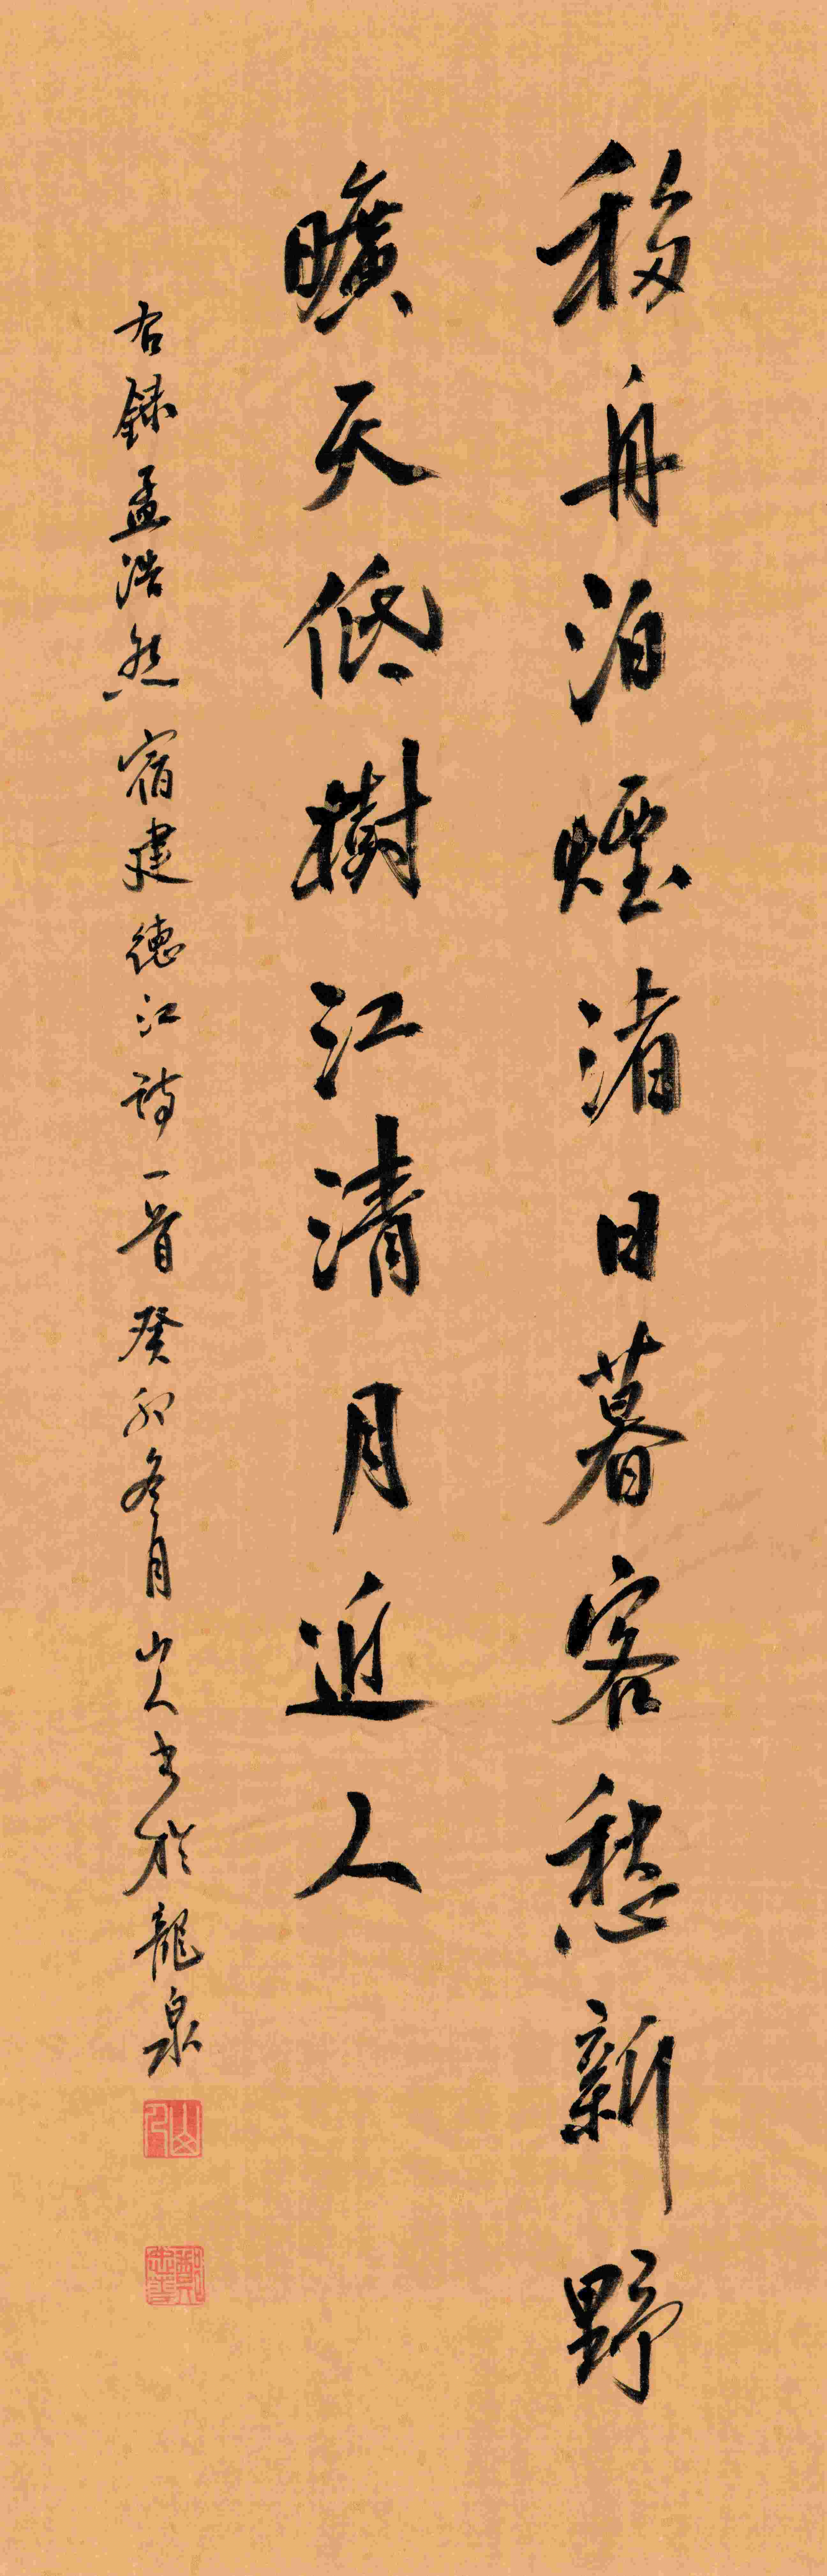 移舟泊煙渚日暮客愁新野
曠天低樹江清月近人
右録孟浩然宿建德江詩一首癸卯冬月山人書於龍泉